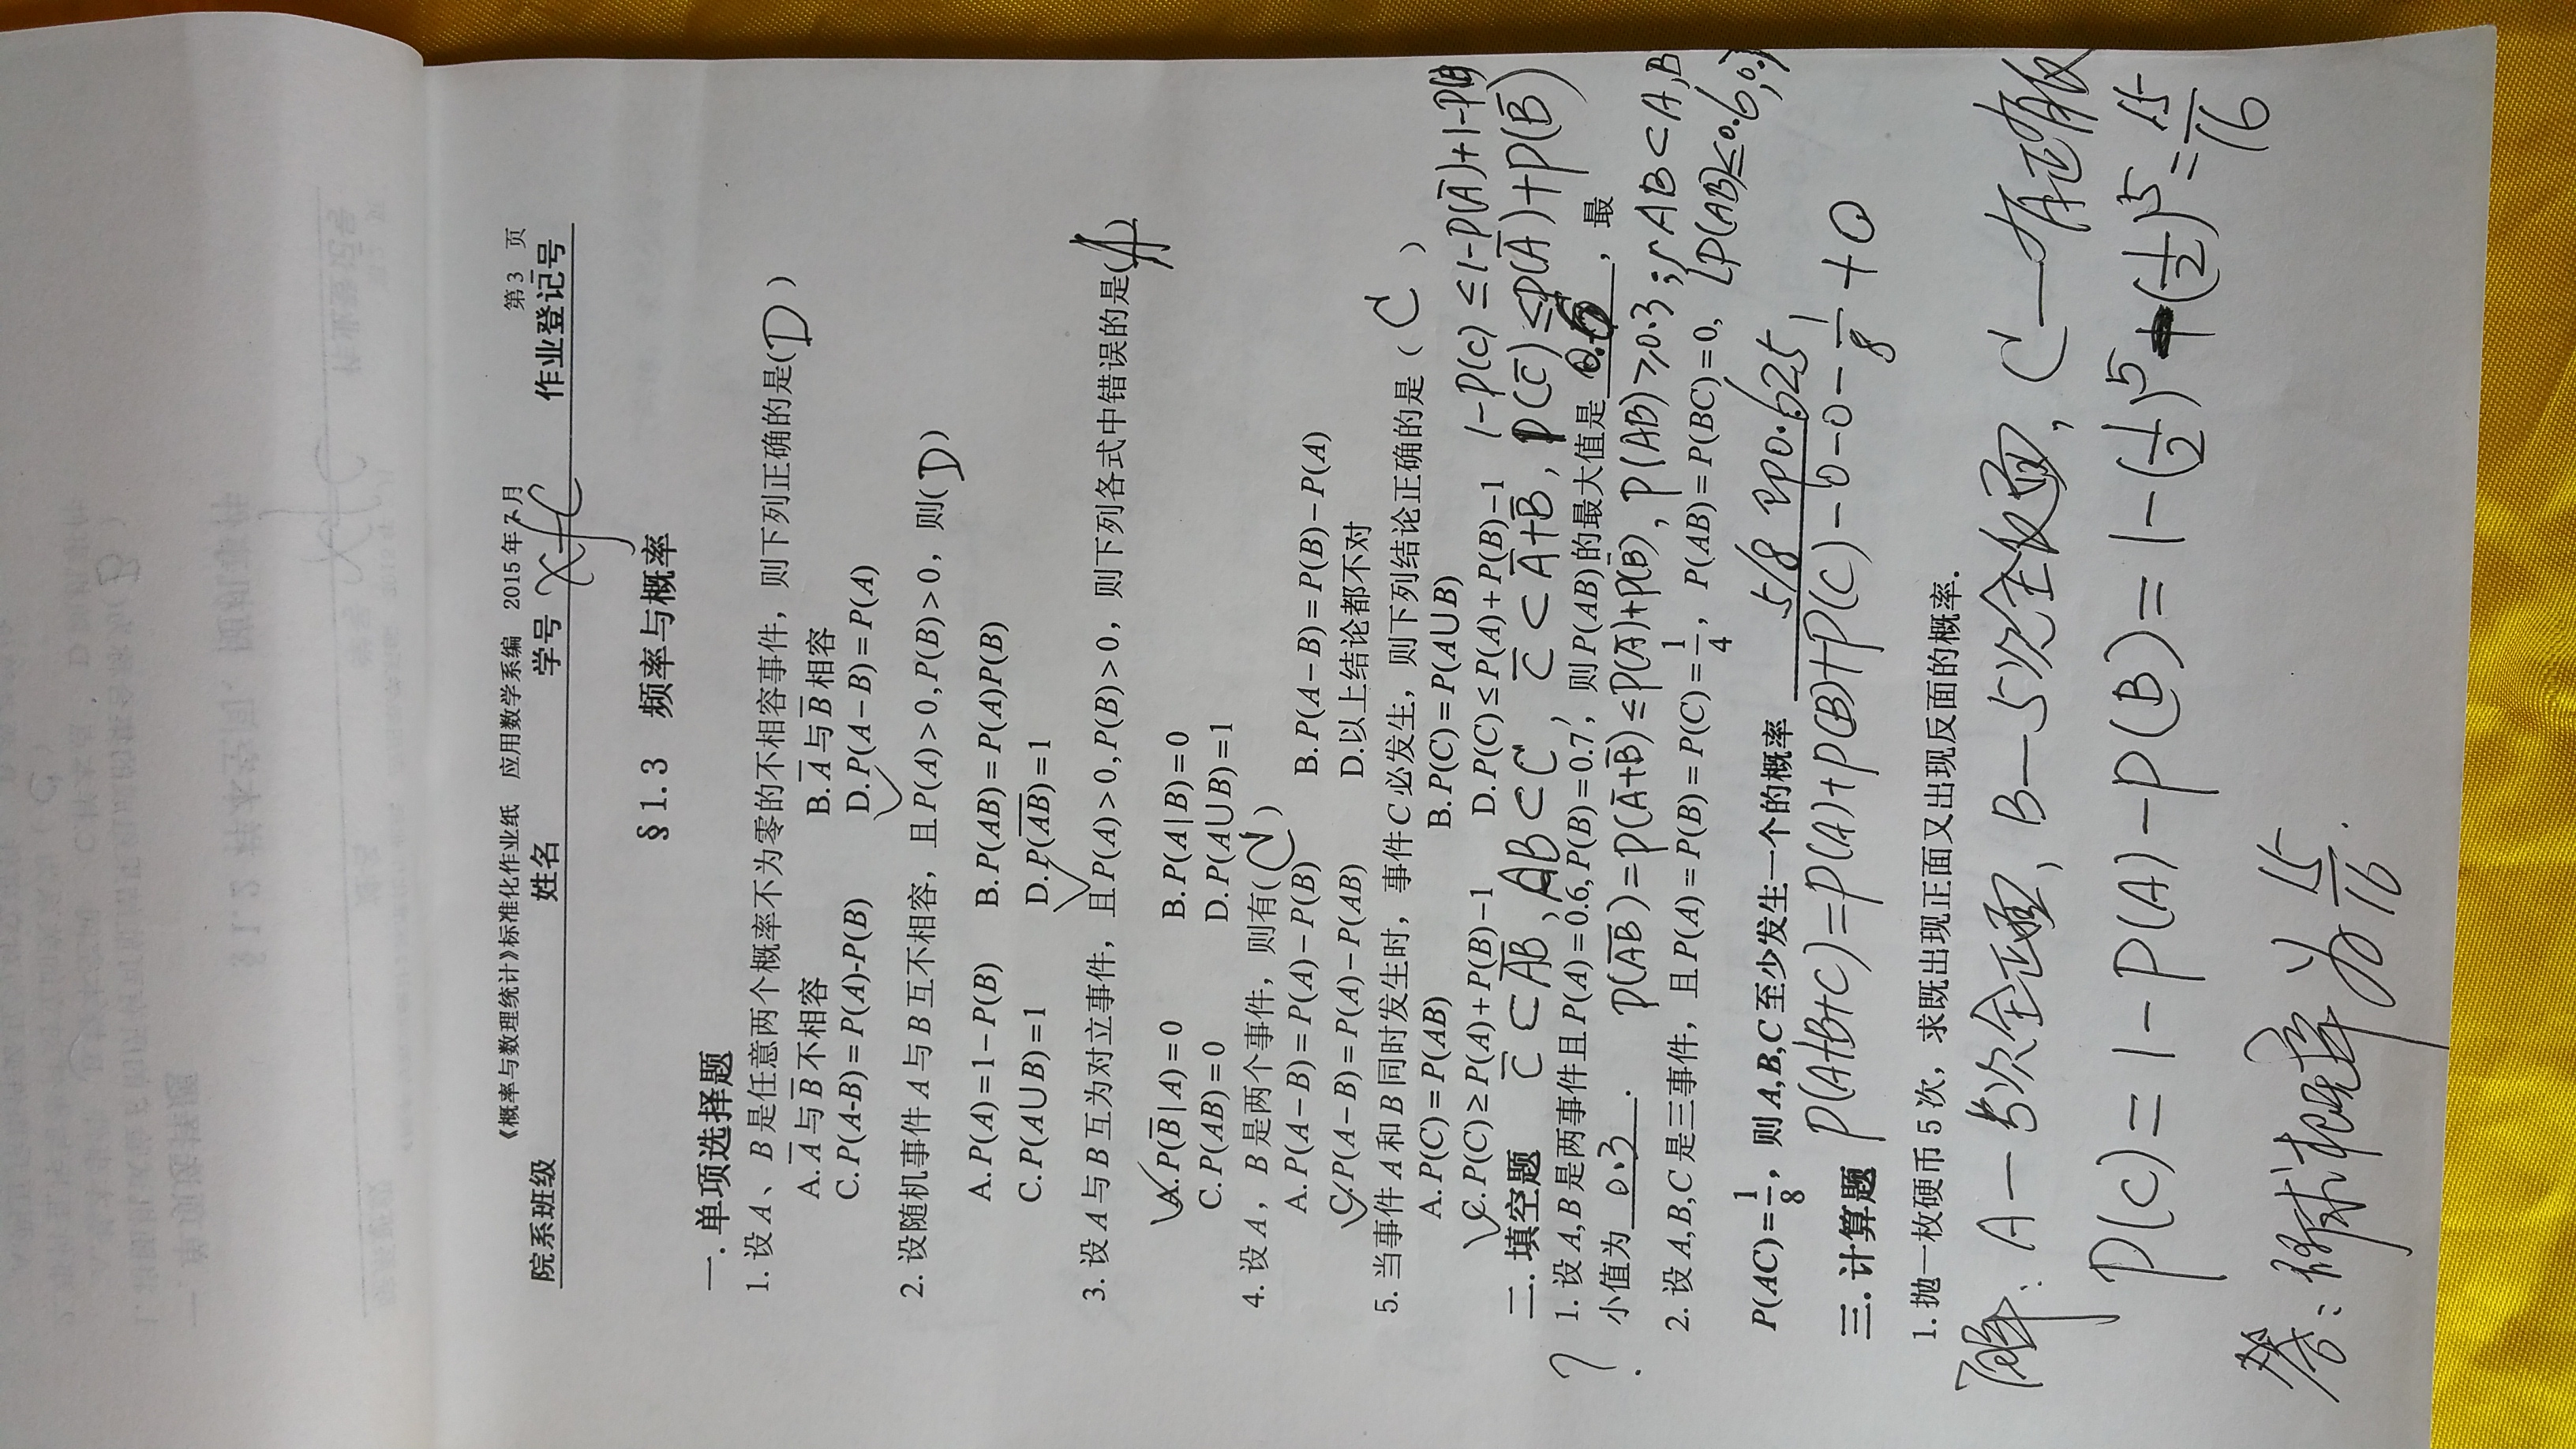 《概率与数理统计》标准化作业纸 应用数学系编 2015年7月 第3 页
院系班级 姓名 学号 xfc 作业登记号
§1.3 频率与概率
一. 单项选择题
1. 设A、B是任意两个概率不为零的不相容事件，则下列正确的是(D)
A. A̅与B̅不相容 B. A̅与B̅相容
C. P(A-B)=P(A)-P(B) D. P(A−B)=P(A)
2. 设随机事件A与B互不相容，且P(A)>0,P(B)>0，则(D)
A. P(A)=1−P(B) B. P(AB)=P(A)P(B)
C. P(A∪B)=1 D. P(A̅B̅)=1
3. 设A与B互为对立事件，且P(A)>0,P(B)>0，则下列各式中错误的是(A)
A. P(B̅|A)=0 B. P(A|B)=0
C. P(AB)=0 D. P(A∪B)=1
4. 设A，B是两个事件，则有(C)
A. P(A−B)=P(A)−P(B) B. P(A−B)=P(B)−P(A)
C. P(A−B)=P(A)−P(AB) D.以上结论都不对
5. 当事件A和B同时发生时，事件C必发生，则下列结论正确的是（C）
A. P(C)=P(AB) B. P(C)=P(A∪B)
C. P(C)≥P(A)+P(B)−1 D. P(C)≤P(A)+P(B)−1 1-P(C)≤1-P(A̅)+1-P(B
二. 填空题 C̅⊂A̅B̅, AB⊂C, C̅⊂A̅+B̅, P(C̅)≤P(A̅)+P(B̅)
? 1. 设A,B是两事件且P(A)=0.6,P(B)=0.7，则P(AB)的最大值是 0.6 ，最
小值为 0.3 . P(A̅B̅)=P(A̅+B̅)≤P(A̅)+P(B̅), P(AB)≥0.3; AB⊂A,B
2. 设A,B,C是三事件，且P(A)=P(B)=P(C)=1/4，P(AB)=P(BC)=0, P(AB)≤0.6,0.7
P(AC)=1/8，则A,B,C至少发生一个的概率 5/8 即0.625
三. 计算题 P(A+B+C)=P(A)+P(B)+P(C)-0-0-1/8+0
1. 抛一枚硬币5次，求既出现正面又出现反面的概率.
解: A—5次全正面, B—5次全反面, C—有正有反
P(C)=1-P(A)-P(B)=1-(1/2)⁵-(1/2)⁵=15/16
答: 所求概率为15/16.